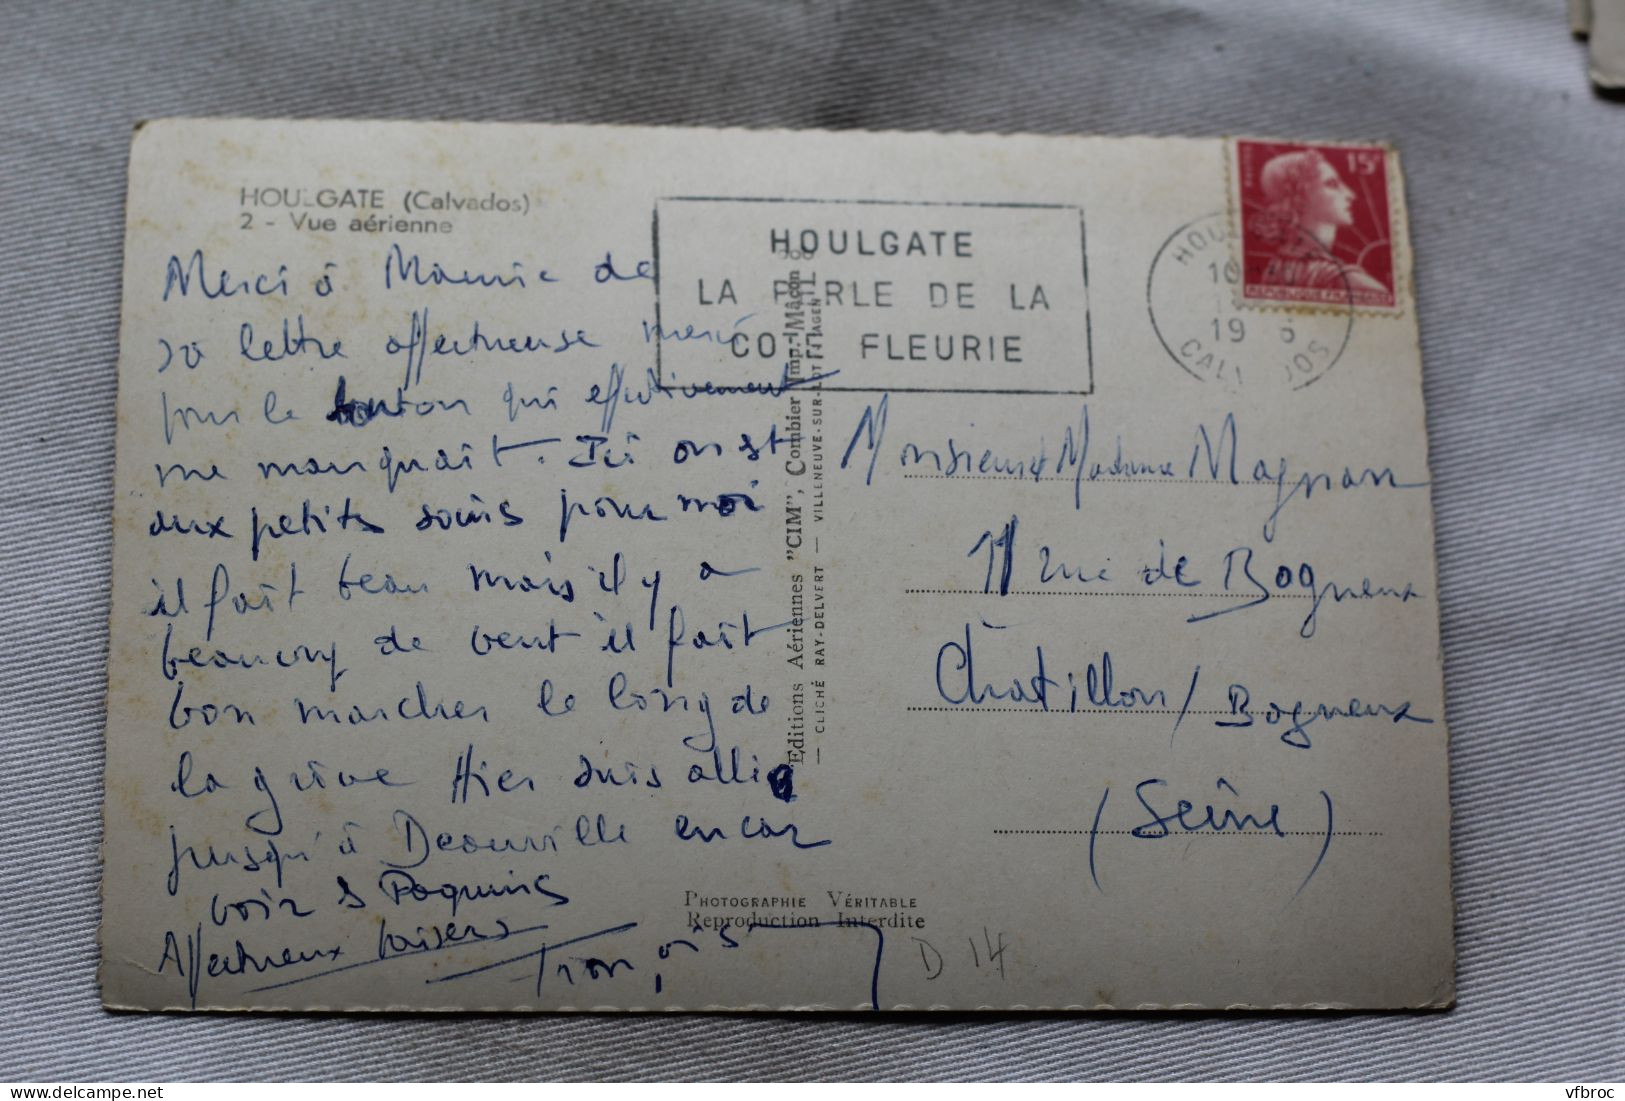 HOULGATE (Calvados)
2 - Vue aérienne
Merci à Mamie de
sa lettre affectueuse merci
pour le bouton qui effectivement
me manquait. Ici on est
aux petits soins pour moi
il fait beau mais il y a
beaucoup de vent il fait
bon marcher le long de
la grève Hier suis allé
jusqu'à Deauville
voir
Affectueux baisers
François
HOULGATE
LA PERLE DE LA
CO FLEURIE
HOU
10
19 6
CAL DOS
15F
REPUBLIQUE FRANÇAISE
Editions Aériennes "CIM", Combier Imp. Mâcon
— CLICHÉ RAY-DELVERT — VILLENEUVE-SUR-LOT
Monsieur et Madame Magnan
11 rue de Bagneux
Chatillon / Bagneux
(Seine)
PHOTOGRAPHIE VÉRITABLE
Reproduction Interdite
D 14
vfbroc